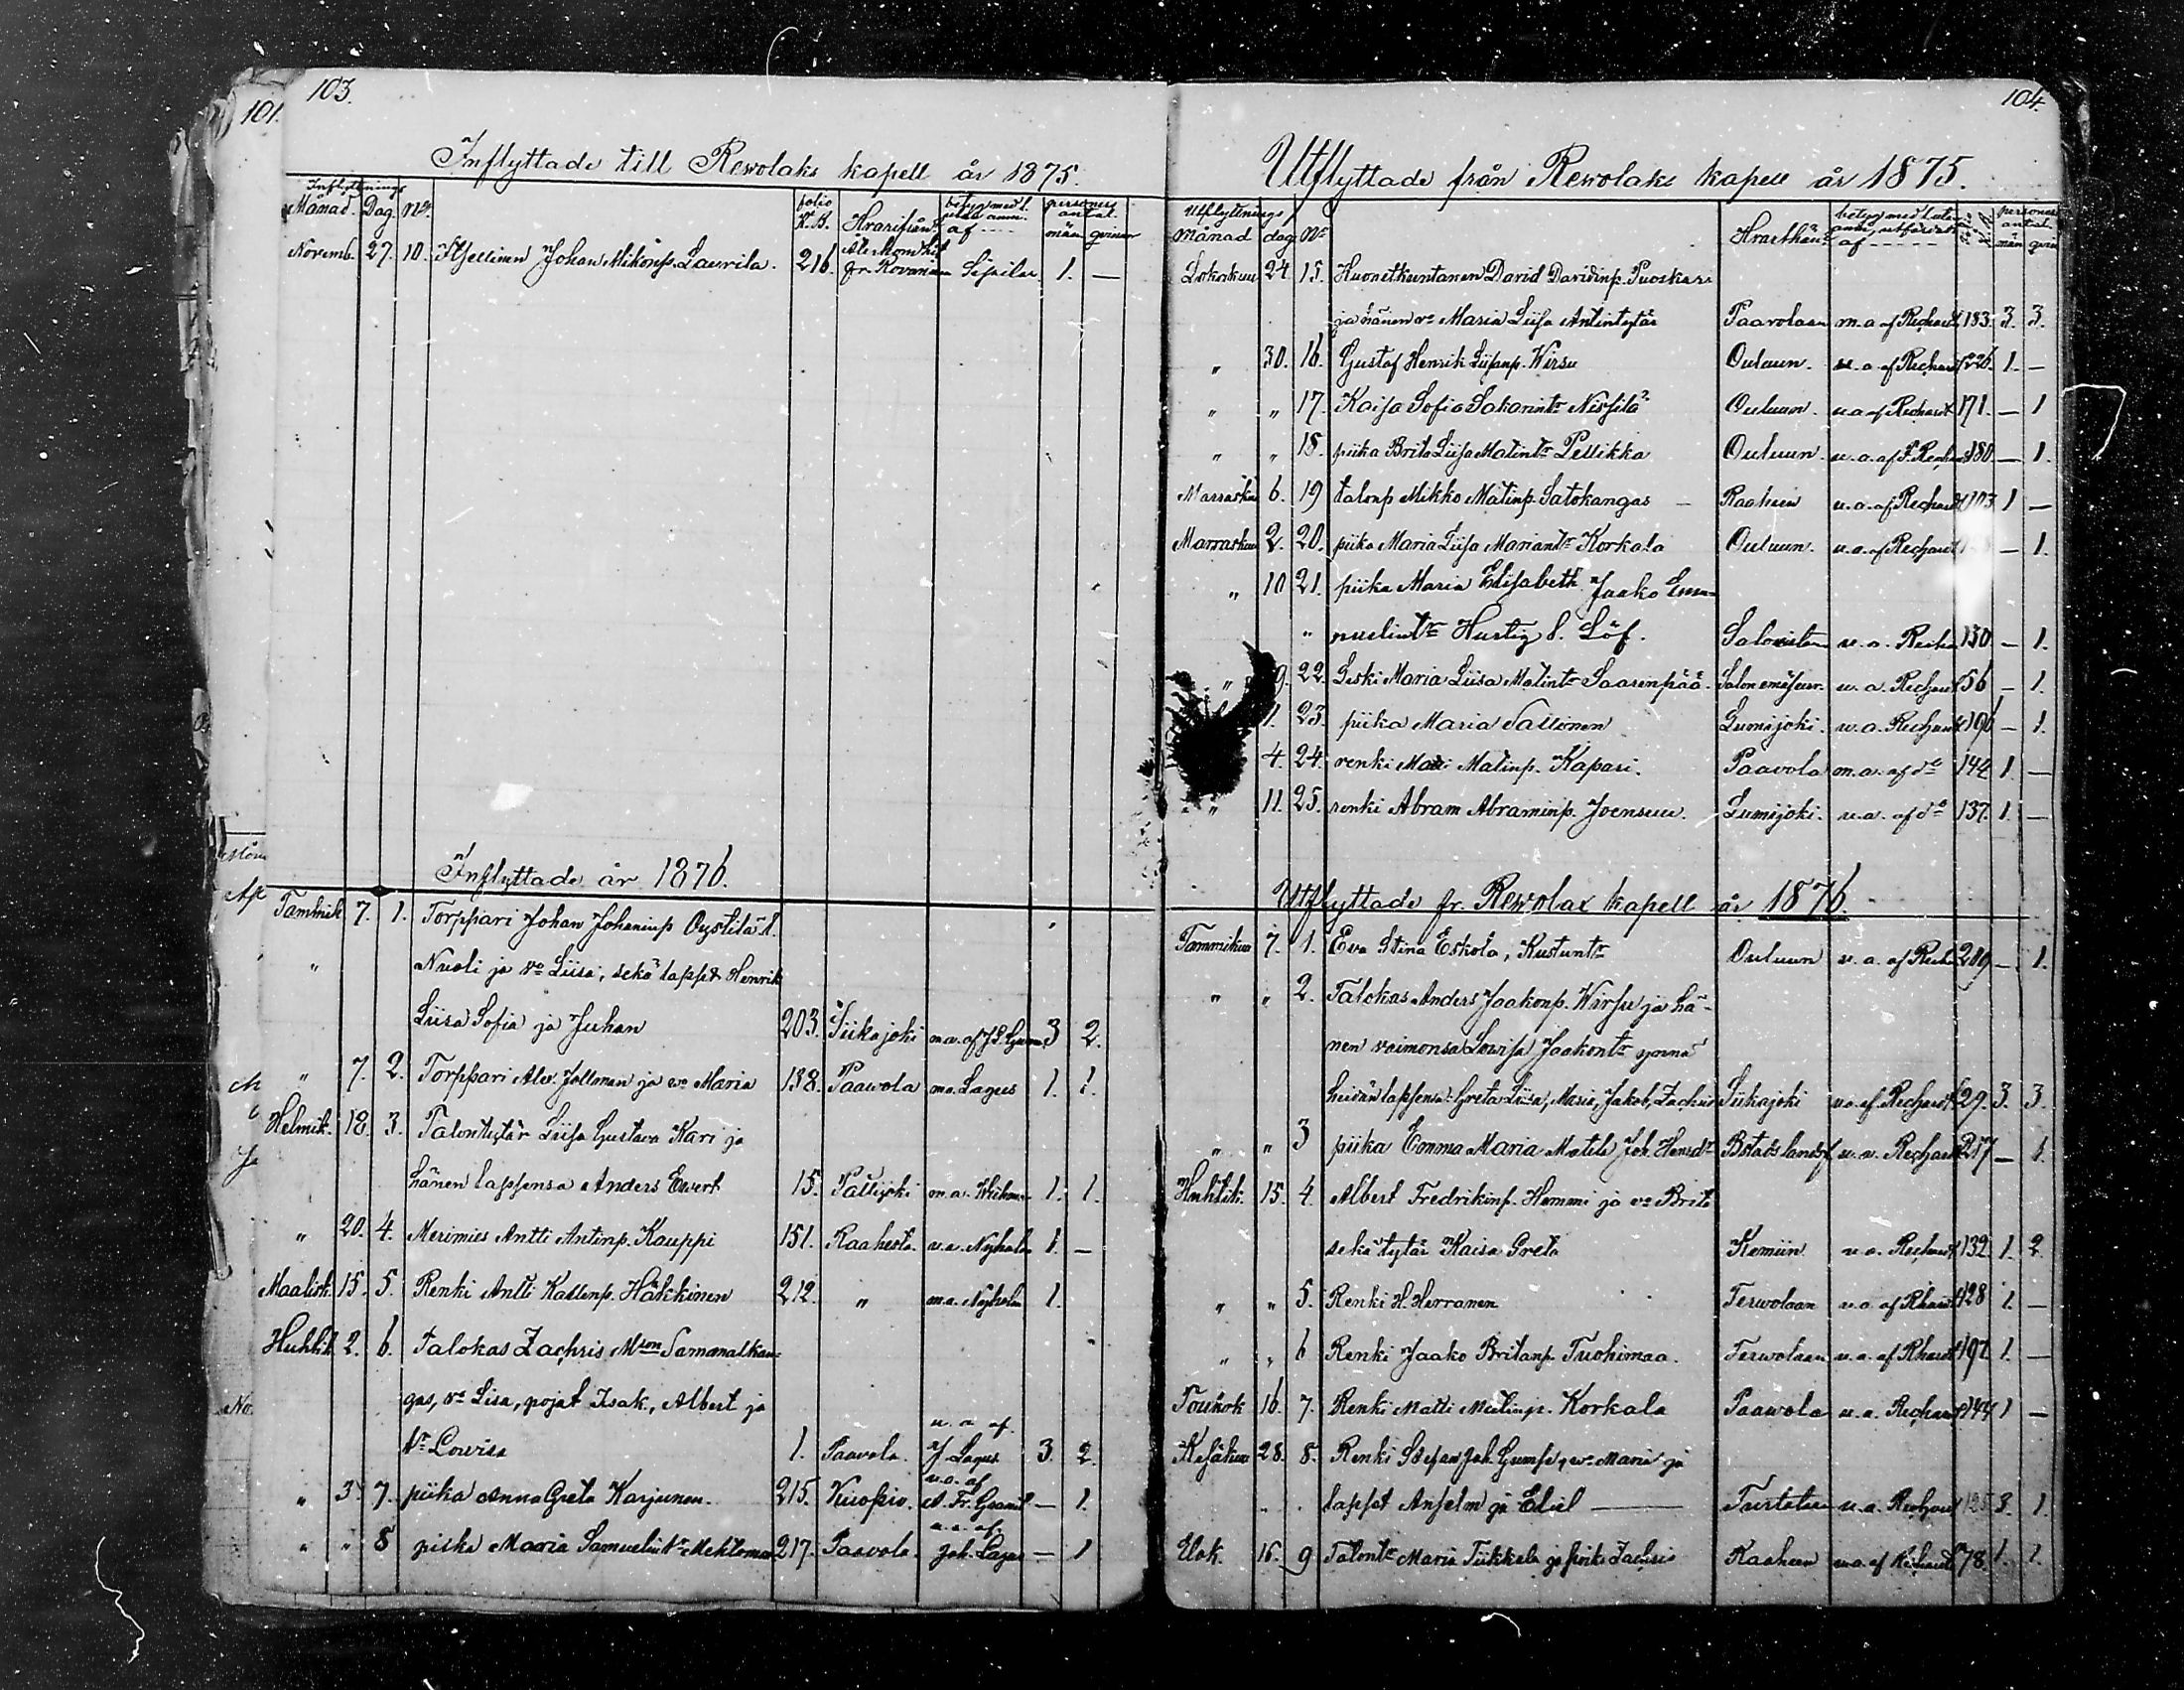 101.
103.
Inflyttade till Rewolaks kapell år 1875.
Inflyttnings
Månad. Dag. No. folio K.B. Hvarifrån betyg med l. af personers antal. män qvinnor
Novemb. 27. 10. Johan Mikonp. Laurila. 216. Sipilar 1. —
Inflyttade år 1876.
Tammik 7. 1. Torppari Johan Johaninp Oystilä l.
" Nuoli ja vo Liisa, sekä lapset Henrik
Liisa Sofia ja Juhan 203. Siikajoki 3 2.
" 7. 2. Torppari Alex. Jallman ja vo Maria 138. Paawola m.a. Lagus 1. 1.
Helmik. 18. 3. Talontytär Liisa Gustava Kari ja
hänen lapsensa Anders Ewert 15. Pattijoki m.a. 1. 1.
" 20. 4. Merimies Antti Antinp. Kauppi 151. Raahesta. u.a. Nyholm 1. —
Maalisk. 15. 5. Renki Antti Kallenp. Häkkinen 212. " m.a. Nyholm 1.
Huhtik 2. 6. talokas Zachris Mson Samanalkan=
gas, vo Lisa, pojat Isak, Albert ja
tr Lovisa 1. Paavola. u. a af J Lagus 3. 2.
" 3. 7. piika Anna Greta Karjunen. 215. Kuopio. u.a. af A. Fr. Granit — 1.
" " 8 piika Maria Samuelint. 217. Paavola. u.a. af. Joh. Lagus — 1
104.
Utflyttade från Rewolaks kapell år 1875.
Utflyttnings
Månad dag No Hvarthän betyg med af personers antal. män qvin
Lokakuu 24 15. Huonetkuntanen David Davidinp. Puoskari
ja hänen vo Maria Liisa Antintytär Paavolaan m.a af Rechardt 183. 3. 3.
" 30. 16. Gustaf Henrik Liisanp. Wirsu Ouluun. u.a. af Rechardt 226. 1. —
" " 17. Kaisa Sofia Sakarintr Nissilä Ouluun. u.a af Rechardt 171. — 1
" " 18. piika Brita Liisa Matintr Pellikka Ouluun. u.a. af F. Rechardt 180. — 1.
Marrasku 6. 19 talonp Mikko Matinp. Satokangas — Raahen u.a. af Rechardt 103 1 —
Marraskuu 2. 20. piika Maria Liisa Mariantr Korkala Ouluun. u.a. af Rechardt — 1.
" 10 21. piika Maria Elisabeth Jaako Emma-
" nuelintr Hustig l. Löf. Saloisten u. a. Recha 130. — 1.
" 9. 22. Leski Maria Liisa Matintr Saarenpää. Salon emäseur. u. a. Rechardt 56 — 1.
1. 23. piika Maria Sallinen Lumijoki. u.a. Rechardt 196 — 1.
4. 24. renki Matti Matinp. Kapari. Paavola m.a. af do 144 1. —
" 11. 25. renki Abram Abraminp. Joensuu. Lumijoki. u.a. af do 137. 1. —
Utflyttade fr. Rewolax kapell år 1876.
Tammikuu 7. 1. Eva Stina Eskola, Kustuntr Ouluun u. a. af Recha 209 — 1.
" " 2. Talokas Anders Jaakonp. Wirsu ja hä-
nen vaimonsa Lowisa Jaakontr ynnä
heidän lapsensa: Greta Liisa, Maria, Jakob, Zachris Siikajoki u.a. af Rechardt 29. 3. 3.
" " 3 piika Emma Maria Matela Joh. Bstads landsf. u. a. Rechardt 217 — 1.
Huhtik. 15. 4. Albert Fredrikinp. Hemmi ja vo Brita
sekä tytär Kaisa Greta Kemiin u. a. Rechardt 132 1. 2.
" " 5. Renki H. Herranen Terwolaan u. a. af 128 1. —
" " 6 Renki Jaako Britanp. Tuohimaa. Terwolaan u. a. af 197 1. —
Toukok 16. 7. Renki Matti Matinp. Korkala Paawola u. a. Rechardt 144 1 —
Kesäkuu 28. 8. Renki Stefan Joh. Gumse, vo Maria ja
lapset Anselm ja Eliel — u. a. Rechardt 3. 1.
Elok. 16. 9 Talontr Maria Tiikkala ja poika Zachris Raaheen m.a. af Rechardt 78. 1. 1.